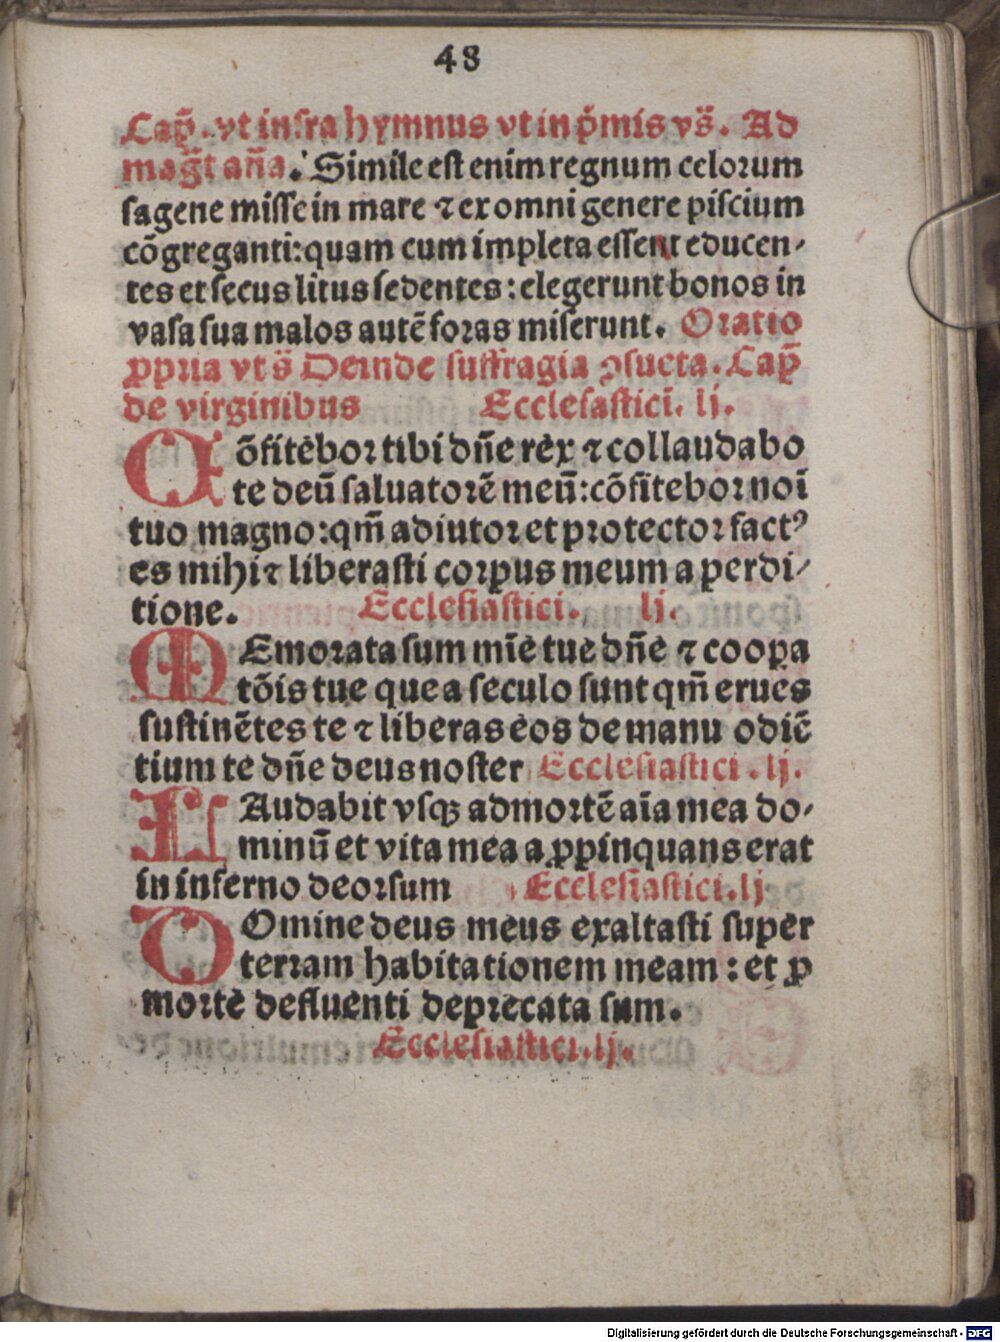 48
Cap̃. vt infra hymnus vt in p̃mis vs̃. Ad
mag̃t aña. Simile est enim regnum celorum
sagene misse in mare ⁊ ex omni genere piscium
cõgreganti: quam cum impleta essent educen-
tes et secus litus sedentes: elegerunt bonos in
vasa sua malos autẽ foras miserunt. Oratio
ꝓpria vt s̃ Deinde suffragia ꝯsueta. Cap̃
de virginibus Ecclesastici. lj.
Cõfitebor tibi dñe rex ⁊ collaudabo
te deũ saluatorẽ meũ: cõfitebor noĩ
tuo magno: qm̃ adiutor et protector factꝰ
es mihi ⁊ liberasti corpus meum a perdi-
tione. Ecclesiastici. lj.
MEmorata sum mĩe tue dñe ⁊ coopa
tõis tue que a seculo sunt qm̃ erues
sustinẽtes te ⁊ liberas eos de manu odiẽ
tium te dñe deus noster Ecclesiastici. lj.
LAudabit vsqꝫ ad mortẽ aĩa mea do-
minũ et vita mea a ꝓpinquans erat
in inferno deorsum Ecclesiastici. lj
DOmine deus meus exaltasti super
terram habitationem meam: et ꝓ
mortẽ defluenti deprecata sum.
Ecclesiastici. lj.
Digitalisierung gefördert durch die Deutsche Forschungsgemeinschaft - DFG